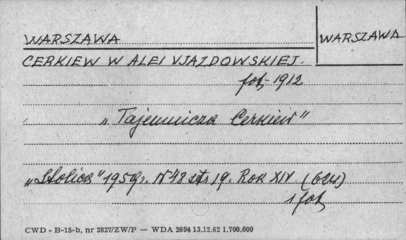 WARSZAWA
WARSZAWA
CERKIEW W ALEI UJAZDOWSKIEJ.
fot. 1912
„Tajemnicza Cerkiew"
„Stolica" 1959r. N 48 str 19. Rok XIV (BZN)
1 fot
CWD - B-15-b, nr 2827/ZW/P — WDA 2694 13.12.62 1.700.000